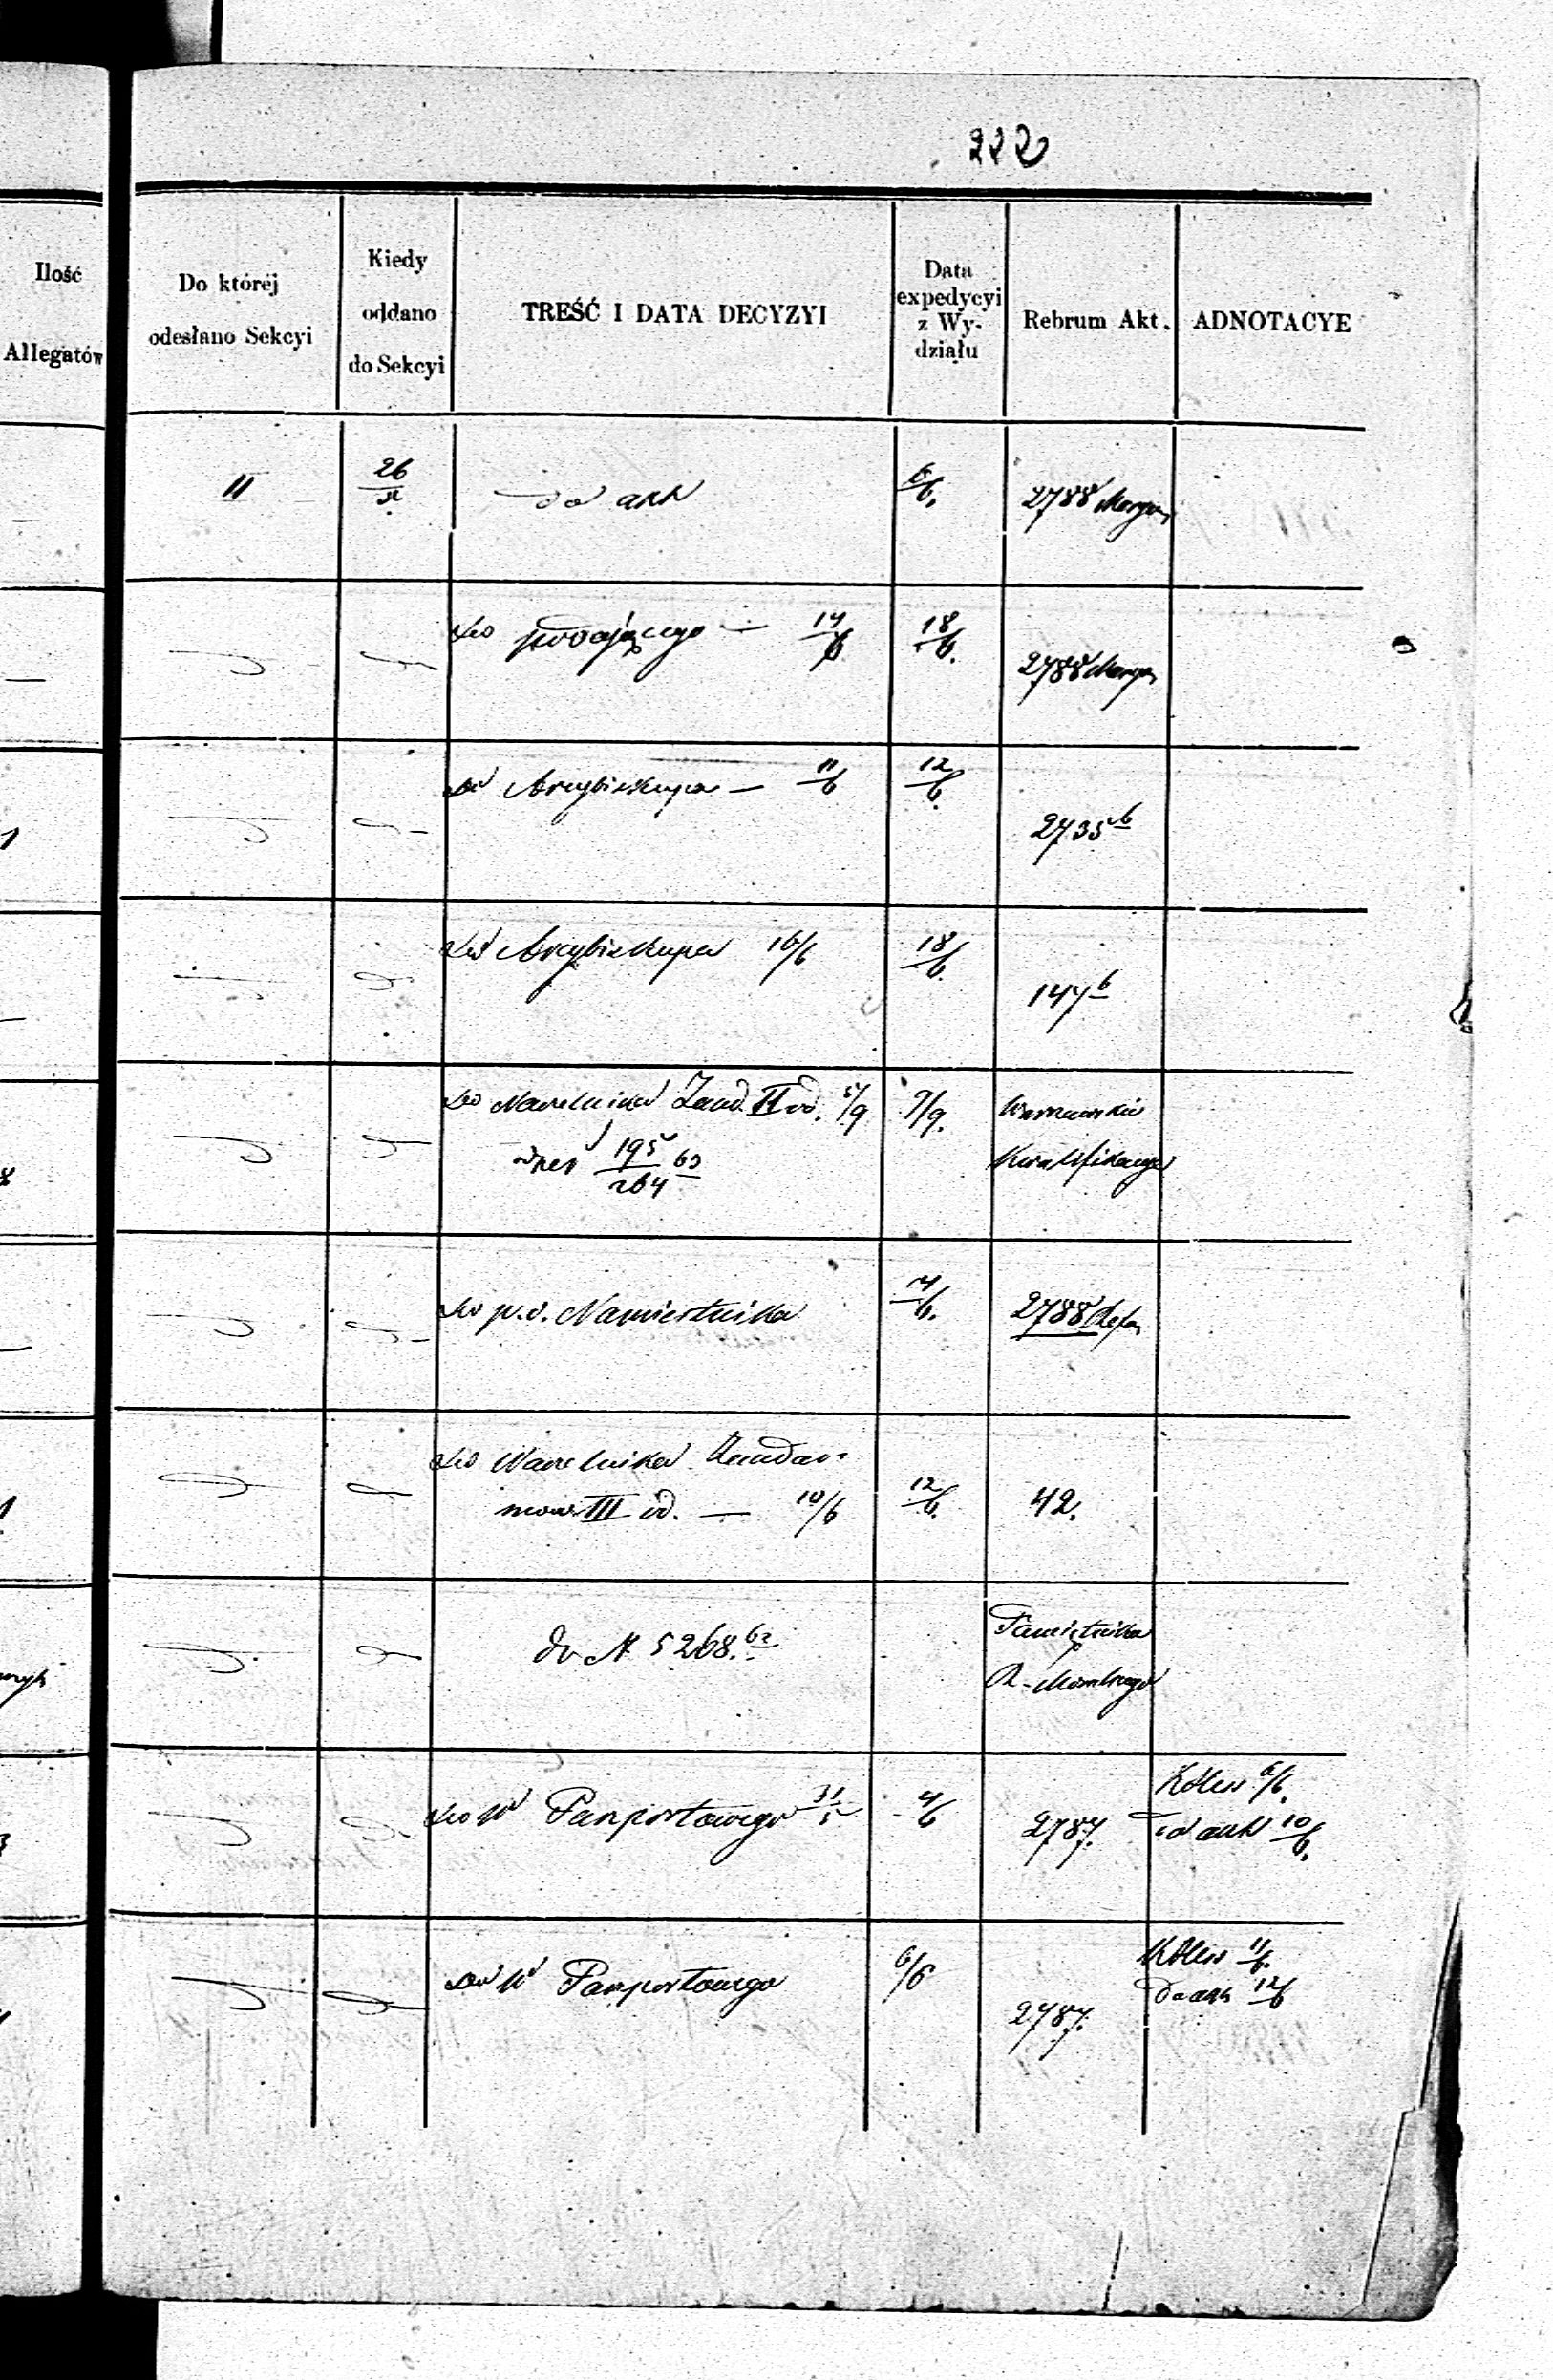 222
Ilość
Allegatów
Do któréj
odesłano Sekcyi
Kiedy
oddano
do Sekcyi
TREŚĆ I DATA DECYZYI
Data
expedycyi
z Wy-
działu
Rebrum Akt.
ADNOTACYE
II
26/5
do akt
6/6.
2788
do podającego — 14/6
18/6.
2788
do Arcybiskupa — 11/6
12/6.
2735 b
do Arcybiskupa 16/6
18/6.
147 b
do Naczelnika Żand. II od. 5/9
195/264 63
7/9.
Warszawskie
Kwalifikacye
do p.o. Namiestnika
4/6.
2788
do Naczelnika Żandar-
mów III od. — 10/6
12/6.
42.
do N 5268. 62
Pamiętnika
do W Pasportowego 31/5
4/6
2787.
6/6.
do akt 10/6.
do W Pasportowego
6/6
2787.
11/6.
do akt 12/6